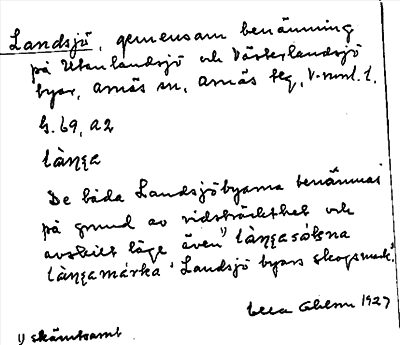 Landsjö, gemensam benämning
på Utanlandsjö och Västerlandsjö
byar, Arnäs sn, Arnäs tlg, V-nrrl. l.
G. 69, A2
làŋŋa
De båda Landsjöbyarna benämnas
på grund av vidsträckthet och
avskilt läge även ¹⁾ làŋŋasóknа
làŋŋamárka 'Landsjö byars skogsmark'.
1927
1) skämtsamt